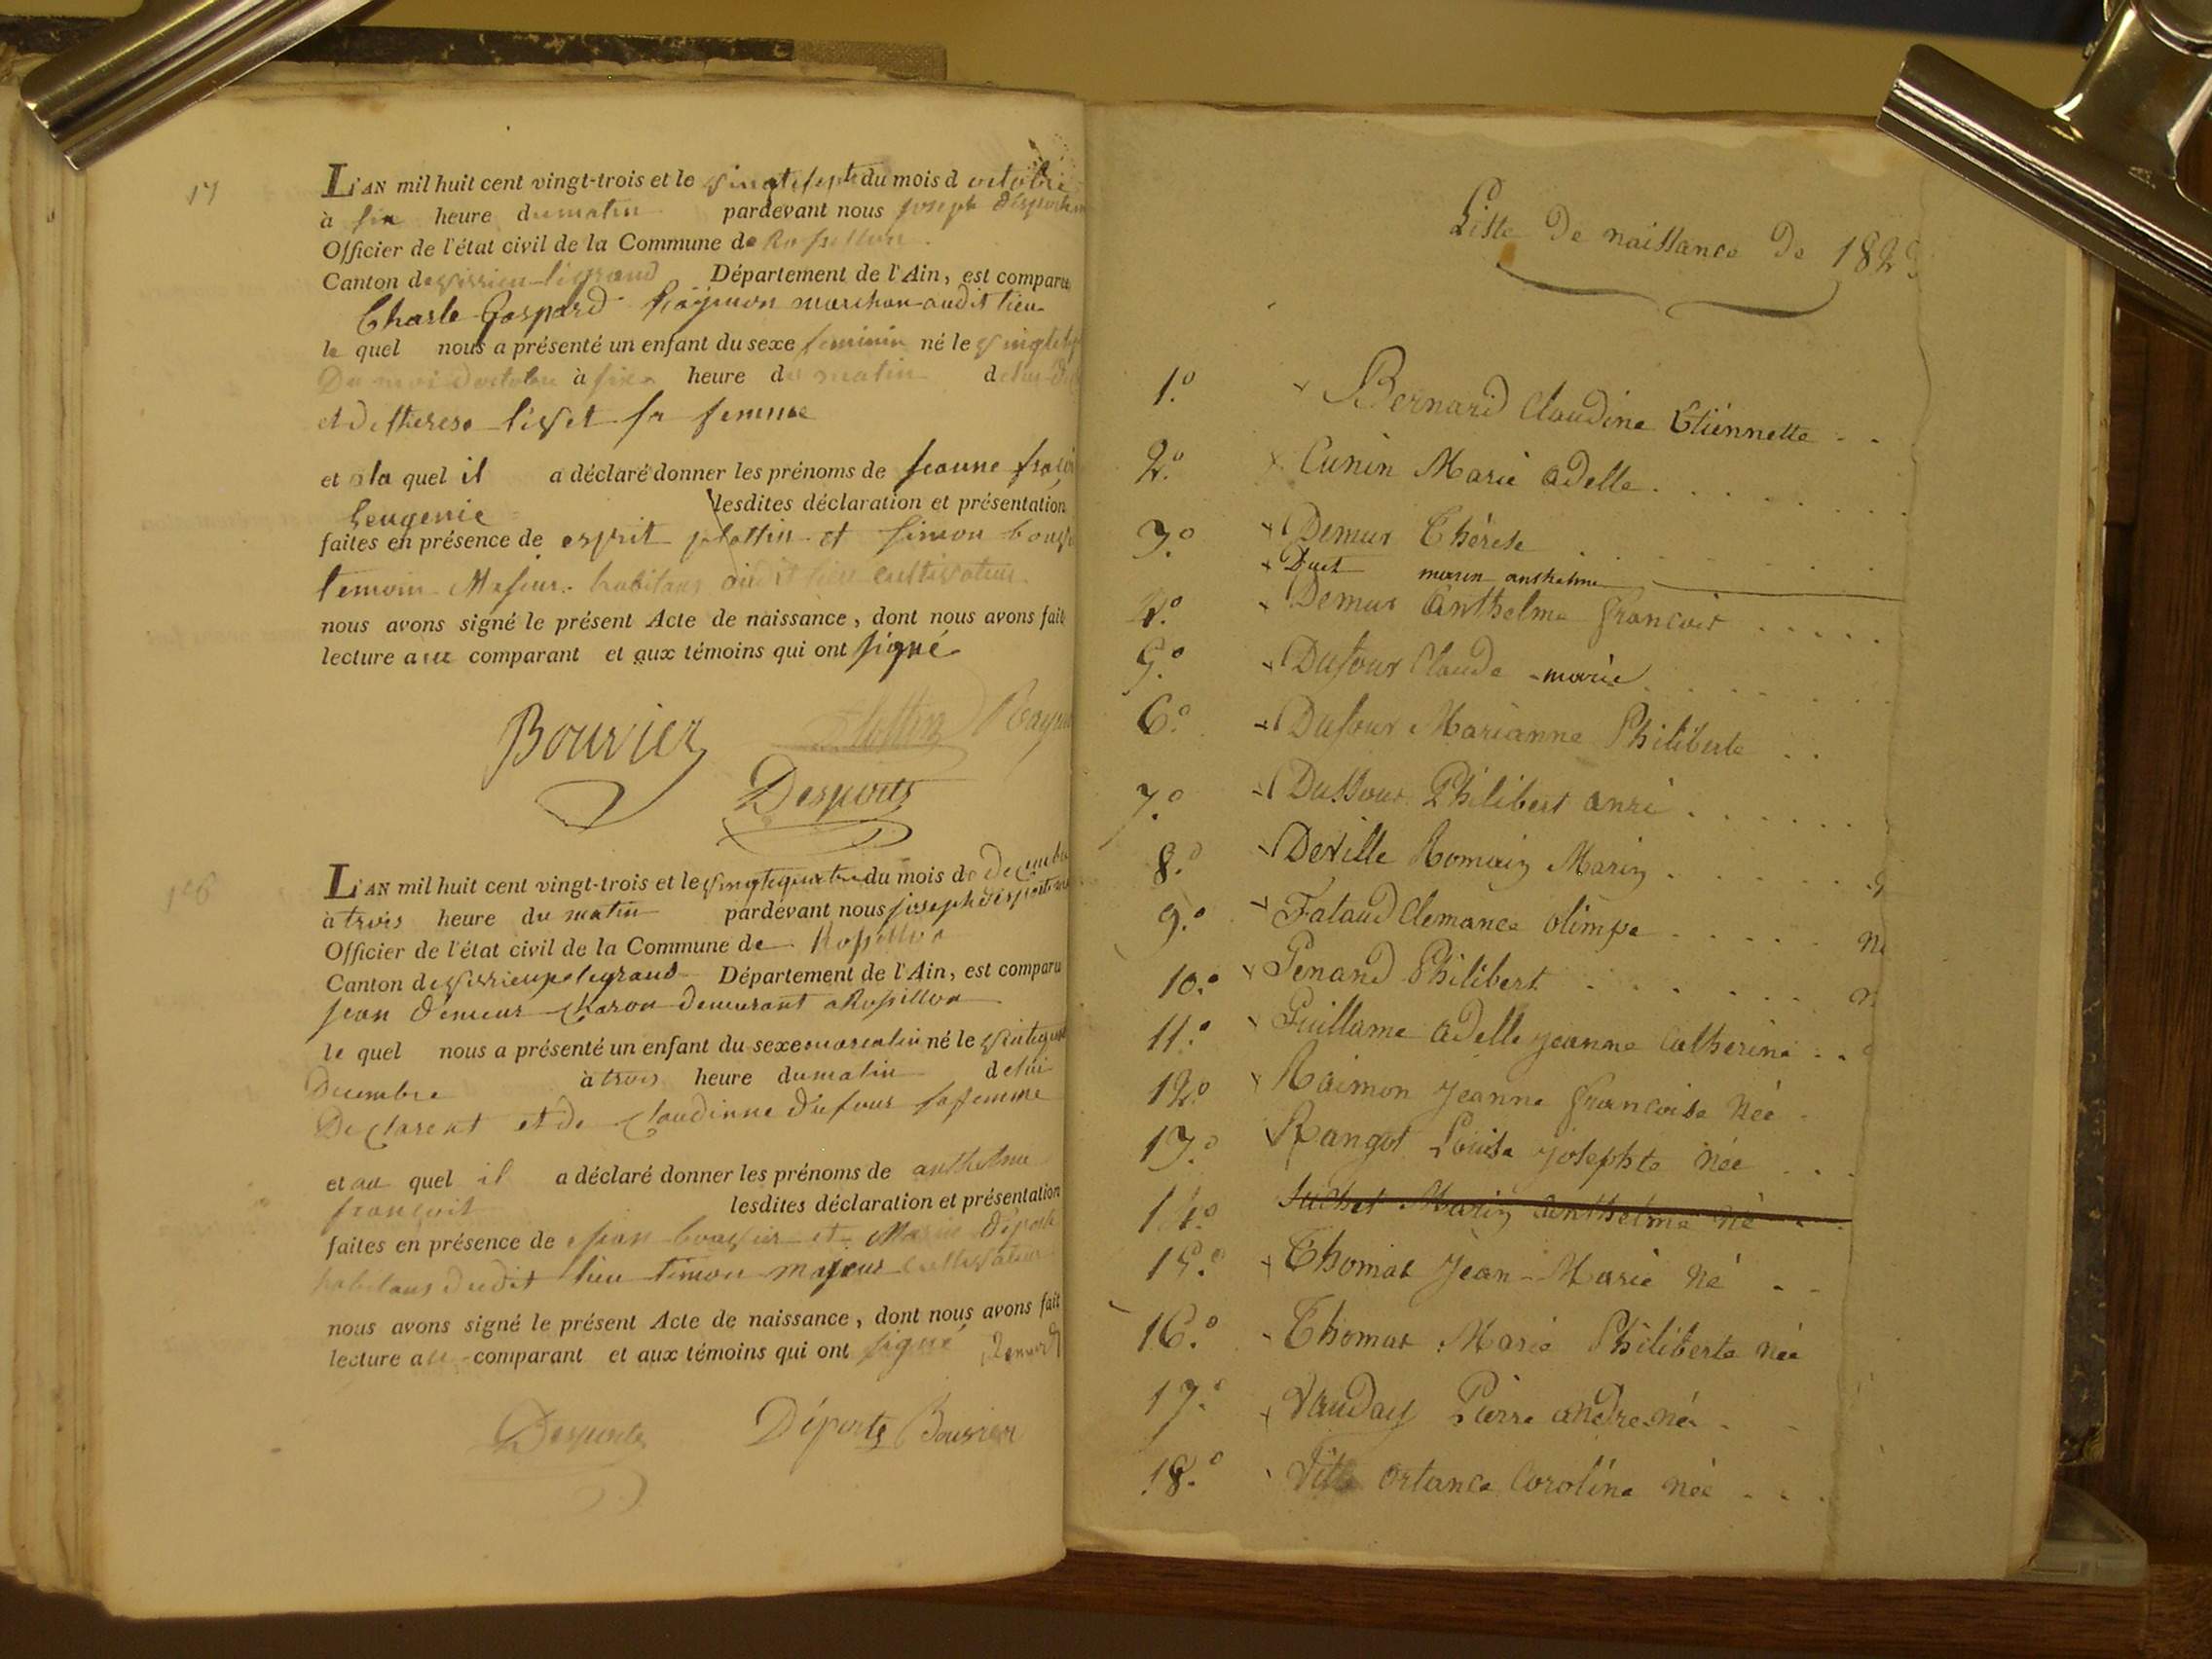 17
L'AN mil huit cent vingt-trois et le vingt sept du mois d octobre
à six heure du matin pardevant nous joseph desportes
Officier de l'état civil de la Commune de Rossillon
Canton de virieu-legrand Département de l'Ain, est comparu
Charle Gaspard Raymon marchan audit lieu
le quel nous a présenté un enfant du sexe feminin né le vingt
Du mois d'octobre à six heure du matin de lui
et de therese livet sa femme
et a la quel il a déclaré donner les prénoms de jeanne
heugenie lesdites déclaration et présentation
faites en présence de esprit plottin et simon
temoin Majeur habitans audit lieu cultivateur
nous avons signé le présent Acte de naissance, dont nous avons fait
lecture au comparant et aux témoins qui ont signé
Bouvier Plottin
Desportes
L'AN mil huit cent vingt-trois et le vingtequatre du mois de Decembre
à trois heure du matin pardevant nous joseph desportes
Officier de l'état civil de la Commune de Rossillon
Canton de Département de l'Ain, est comparu
jean demeur charon demeurant a Rossillon
le quel nous a présenté un enfant du sexe masculin né le
Decembre à trois heure du matin de lui
Declarent et de claudinne dufour sa femme
et au quel il a déclaré donner les prénoms de anthelme
francoit lesdites déclaration et présentation
faites en présence de jean bouvier et Marin
habitans dudit lieu temoin majeur cultivateur
nous avons signé le présent Acte de naissance, dont nous avons fait
lecture au comparant et aux témoins qui ont signé
Desportes Déporte Bouvier
Liste de naissance de 1823
1.° Bernard Claudine Etiennette . .
2.° Cunin Marie adelle . . . . . . .
3.° Demur Thérese . . . . .
Duet marin anthelme
4.° Demur Anthelme francois . . . . .
5.° Dufour Claude marie . . . . .
6.° Dufour Marianne Philiberte . .
7.° Duffour Philibert anri . . . . . .
8.° Deville Romain Marin . . . . . .
9.° Fataud Clemance olimpe . . . . .
10.° Genand Philibert . . . . . . .
11.° Guillame adelle jeanne Catherine . .
12.° Raimon jeanne francoise née .
13.° Rangot Louise josephte née . . .
14.° Suchet Marin Anthelme né . . .
15.° Thomas Jean-Marie né . .
16.° Thomas Marie Philiberte née
17.° Vauday Pierre andre né . .
18.° Ville ortance Coroline née . . .